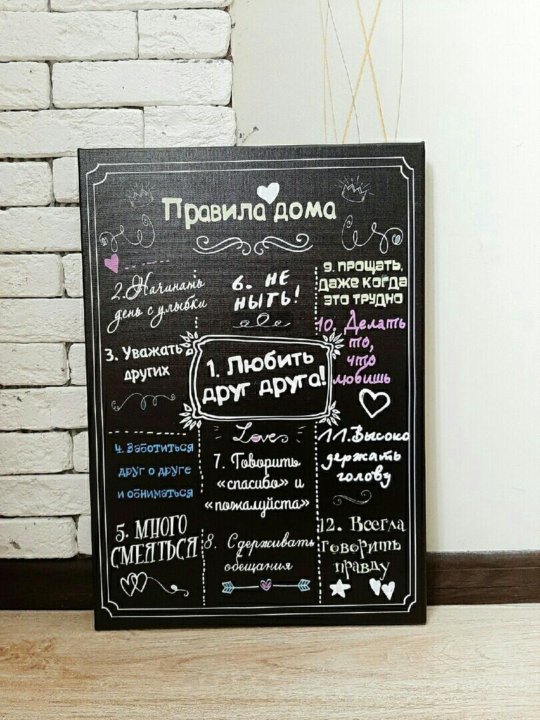 Правила дома
2. Начинать
день с улыбки
3. Уважать
других
4. Заботиться
друг о друге
и обниматься
5. МНОГО
СМЕЯТЬСЯ
6. НЕ
НЫТЬ!
1. Любить
друг друга!
Love
7. Говорить
«спасибо» и
«пожалуйста»
8. Сдерживать
обещания
9. прощать,
даже когда
это трудно
10. Делать
то,
что
любишь
11. Высоко
держать
голову
12. Всегда
говорить
правду